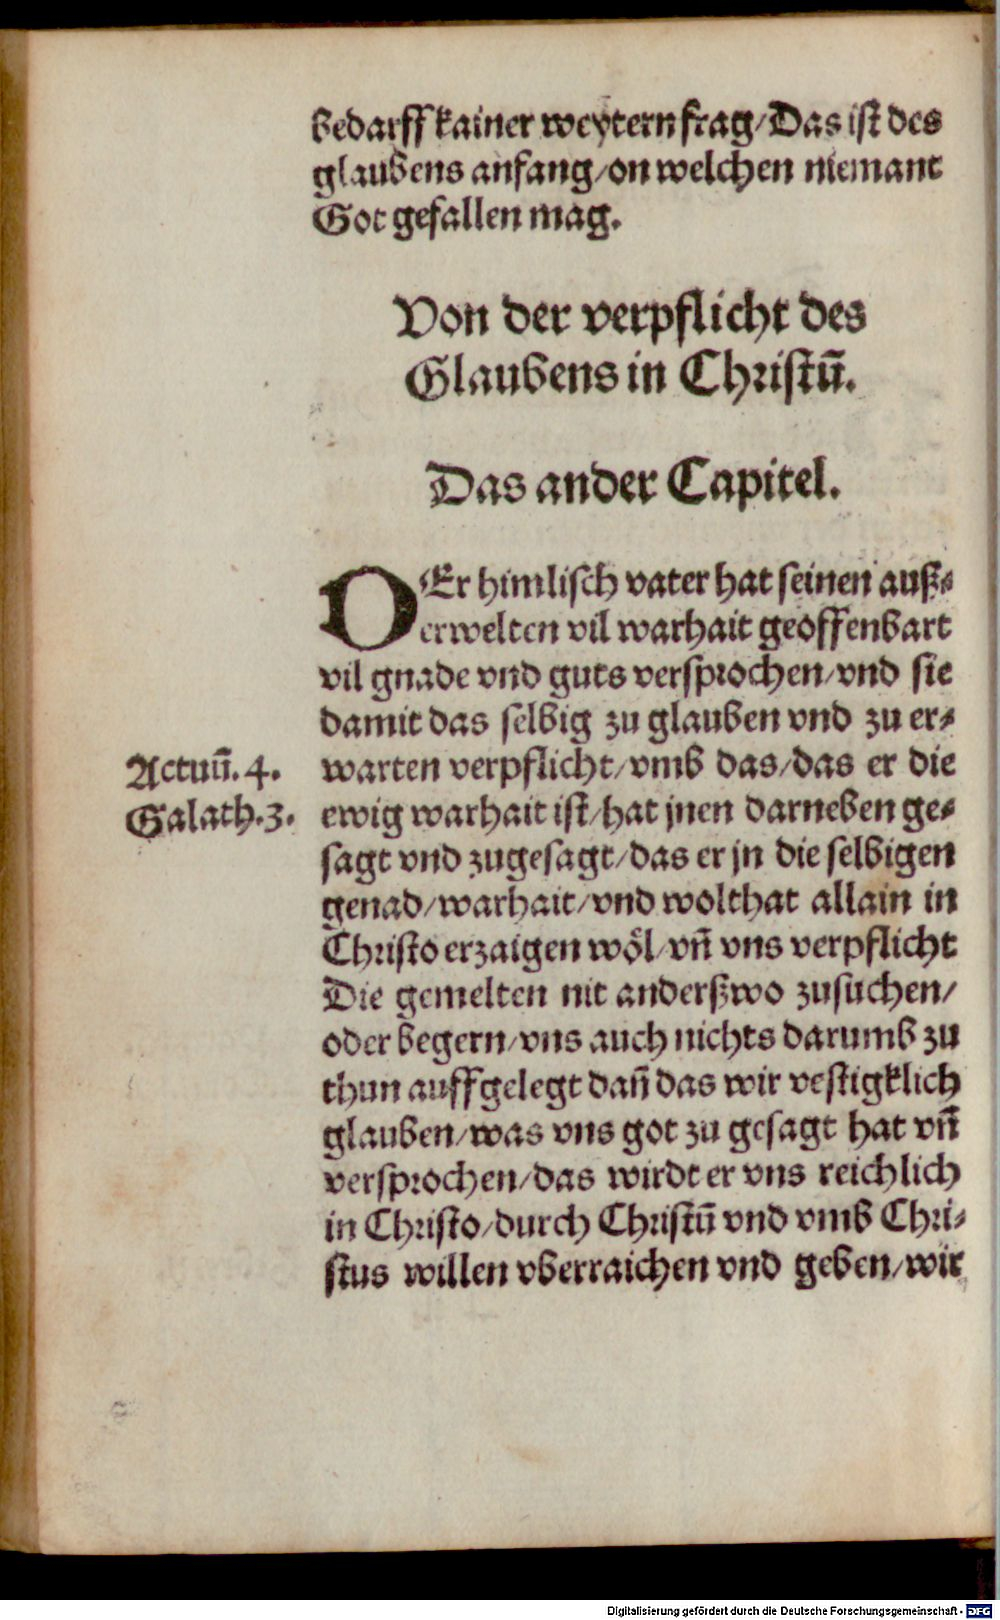 bedarff kainer weytern frag/Das ist des
glaubens anfang/on welchen niemant
Got gefallen mag.
Von der verpflicht des
Glaubens in Christū.
Das ander Capitel.
DEr himlisch vater hat seinen auß⸗
erwelten vil warhait geoffenbart
vil gnade vnd guts versprochen/vnd sie
damit das selbig zu glauben vnd zu er⸗
Actuū. 4.
Galath. 3.
warten verpflicht/vmb das/das er die
ewig warhait ist/hat jnen darneben ge⸗
sagt vnd zugesagt/das er jn die selbigen
genad/warhait/vnd wolthat allain in
Christo erzaigen wöl/vn̄ vns verpflicht
Die gemelten nit anderßwo zusuchen/
oder begern/vns auch nichts darumb zu
thun auffgelegt dan̄ das wir vestigklich
glauben/was vns got zu gesagt hat vn̄
versprochen/das wirdt er vns reichlich
in Christo/durch Christū vnd vmb Chri⸗
stus willen vberraichen vnd geben/wir
Digitalisierung gefördert durch die Deutsche Forschungsgemeinschaft - DFG